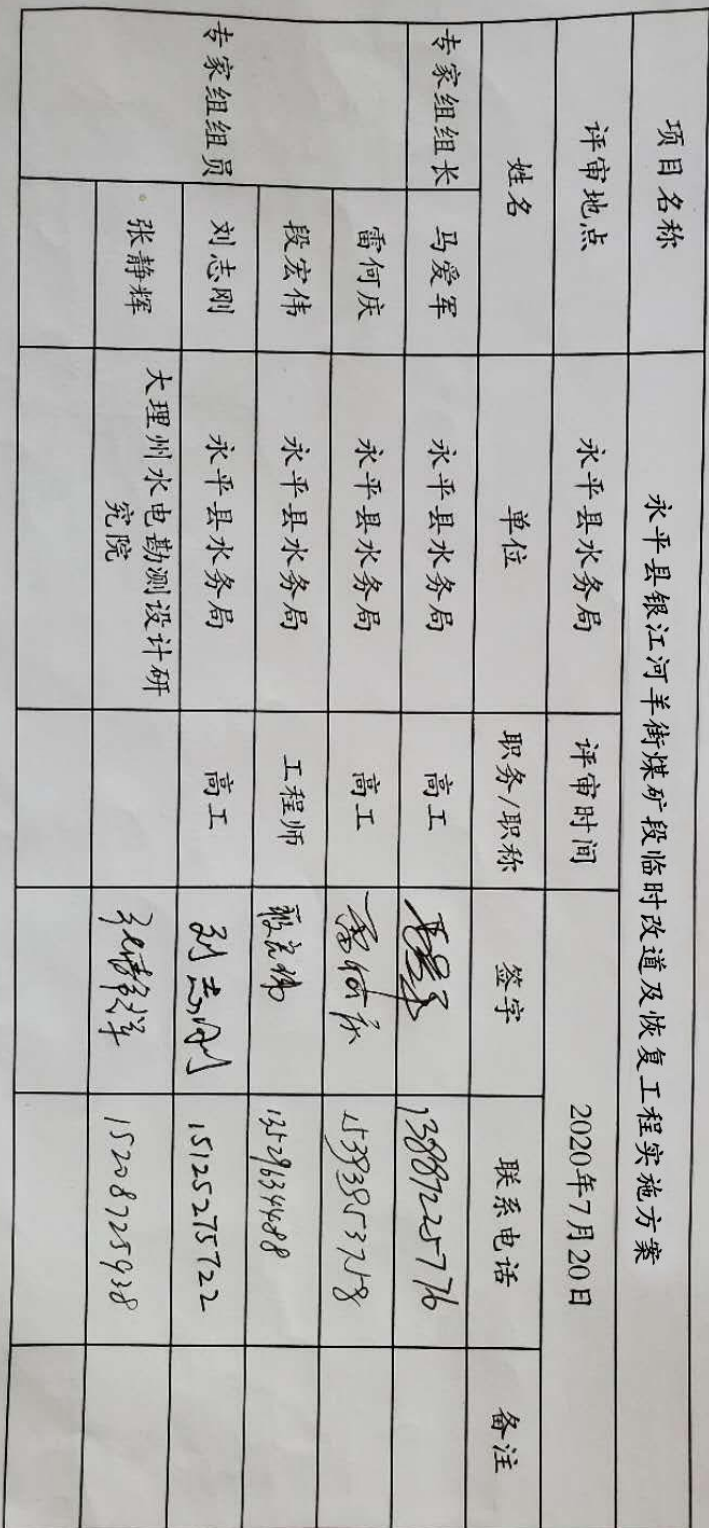 项目名称 永平县银江河羊街煤矿段临时改道及恢复工程实施方案
评审地点 永平县水务局 评审时间 2020年7月20日
姓名 单位 职务/职称 签字 联系电话 备注
专家组组长 马爱军 永平县水务局 高工 13887225776
专家组组员 雷何庆 永平县水务局 高工 雷何庆
段宏伟 永平县水务局 工程师 段宏伟 13529634488
刘志刚 永平县水务局 高工 刘志刚 15125275722
张静辉 大理州水电勘测设计研
究院 张静辉 15208725938